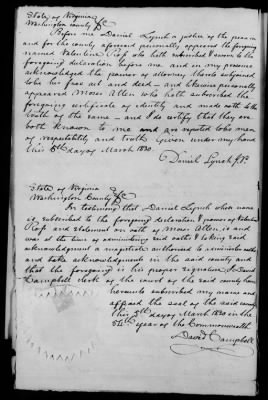 State of Virginia
Washington County Sc
Before me Daniel Lynch a justice of the peace in
and for the county aforesaid personally appeared the foregoing
named Valentine who hath subscribed & sworn to the
foregoing declaration before me and in my presence
acknowledged the power of attorney thereto subjoined
to be his act and deed – and likewise personally
appeared Moses Allen who hath subscribed the
foregoing certificate of identity and made oath to the
truth of the same – and I do certify that they are
both known to me and are reputed to be men
of respectability and truth Given under my hand
this 5th day of March 1830.
Daniel Lynch J.P.
State of Virginia
Washington County Sc
In testimony that Daniel Lynch whose name
is subscribed to the foregoing declaration & power of Valentine
and statement on oath of Moses Allen, is and
was at the time of administering said oaths & taking said
acknowledgment a magistrate authorized to administer oaths
and take acknowledgments in the said county and
that the foregoing is his proper signature I David
Campbell clerk of the court of the said county have
hereunto subscribed my name and
affixed the seal of the said county
this 5th day of March 1830 in the
54th year of the Commonwealth
David Campbell